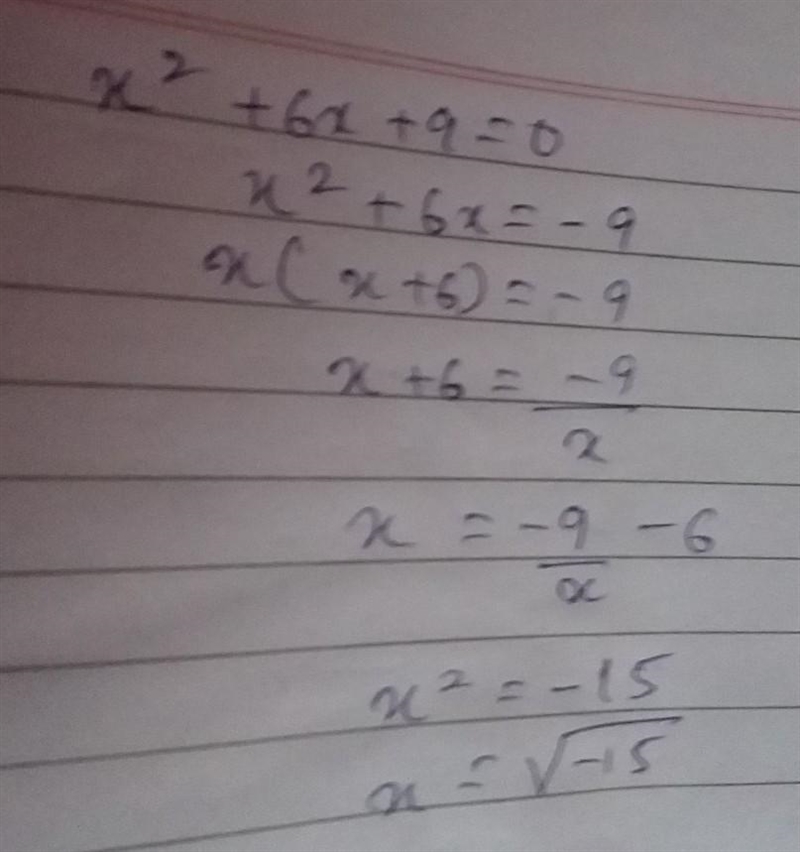 x² + 6x + 9 = 0
x² + 6x = -9
x(x+6) = -9
x + 6 = -9/x
x = -9/x - 6
x² = -15
x = √-15